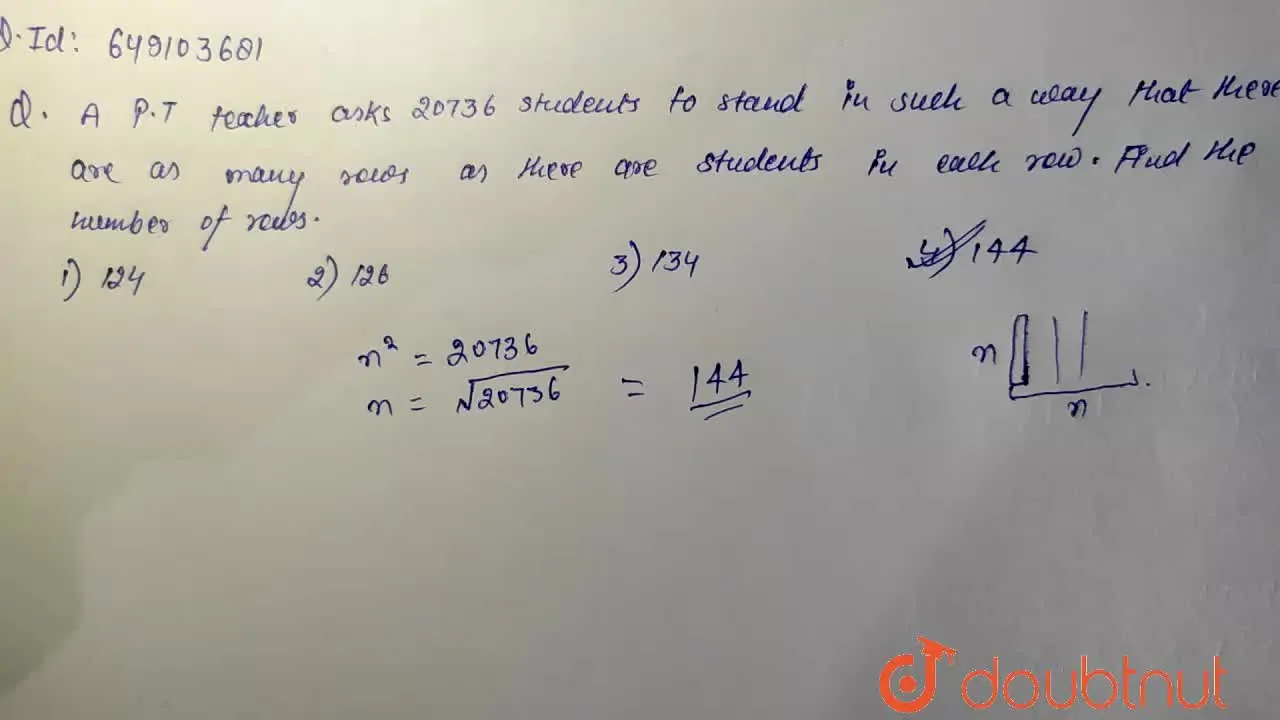 Q.Id: 649103681
Q. A P.T teacher asks 20736 students to stand in such a way that there
are as many rows as there are students in each row. Find the
number of rows.
1) 124 2) 126 3) 134 4) 144
n² = 20736
n = √20736 = 144
n
n
doubtnut